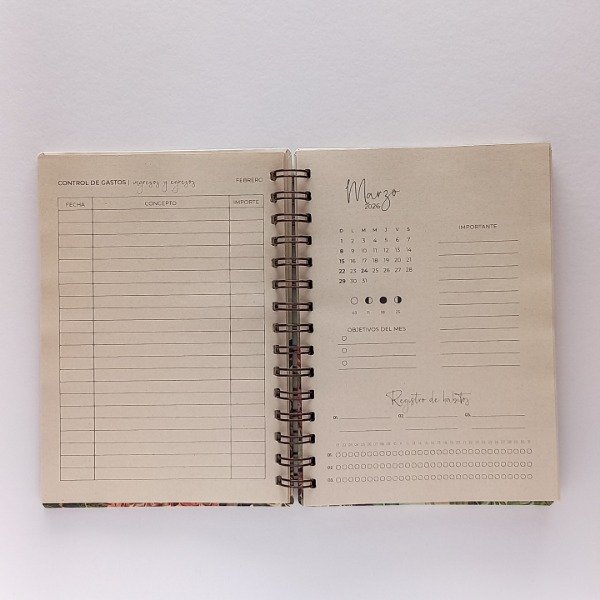 CONTROL DE GASTOS | ingresos y egresos FEBRERO
FECHA CONCEPTO IMPORTE
Marzo
2026
D L M M J V S
1 2 3 4 5 6 7
8 9 10 11 12 13 14
15 16 17 18 19 20 21
22 23 24 25 26 27 28
29 30 31
IMPORTANTE
OBJETIVOS DEL MES
Registro de hábitos
01. 02. 03.
01.
02.
03.